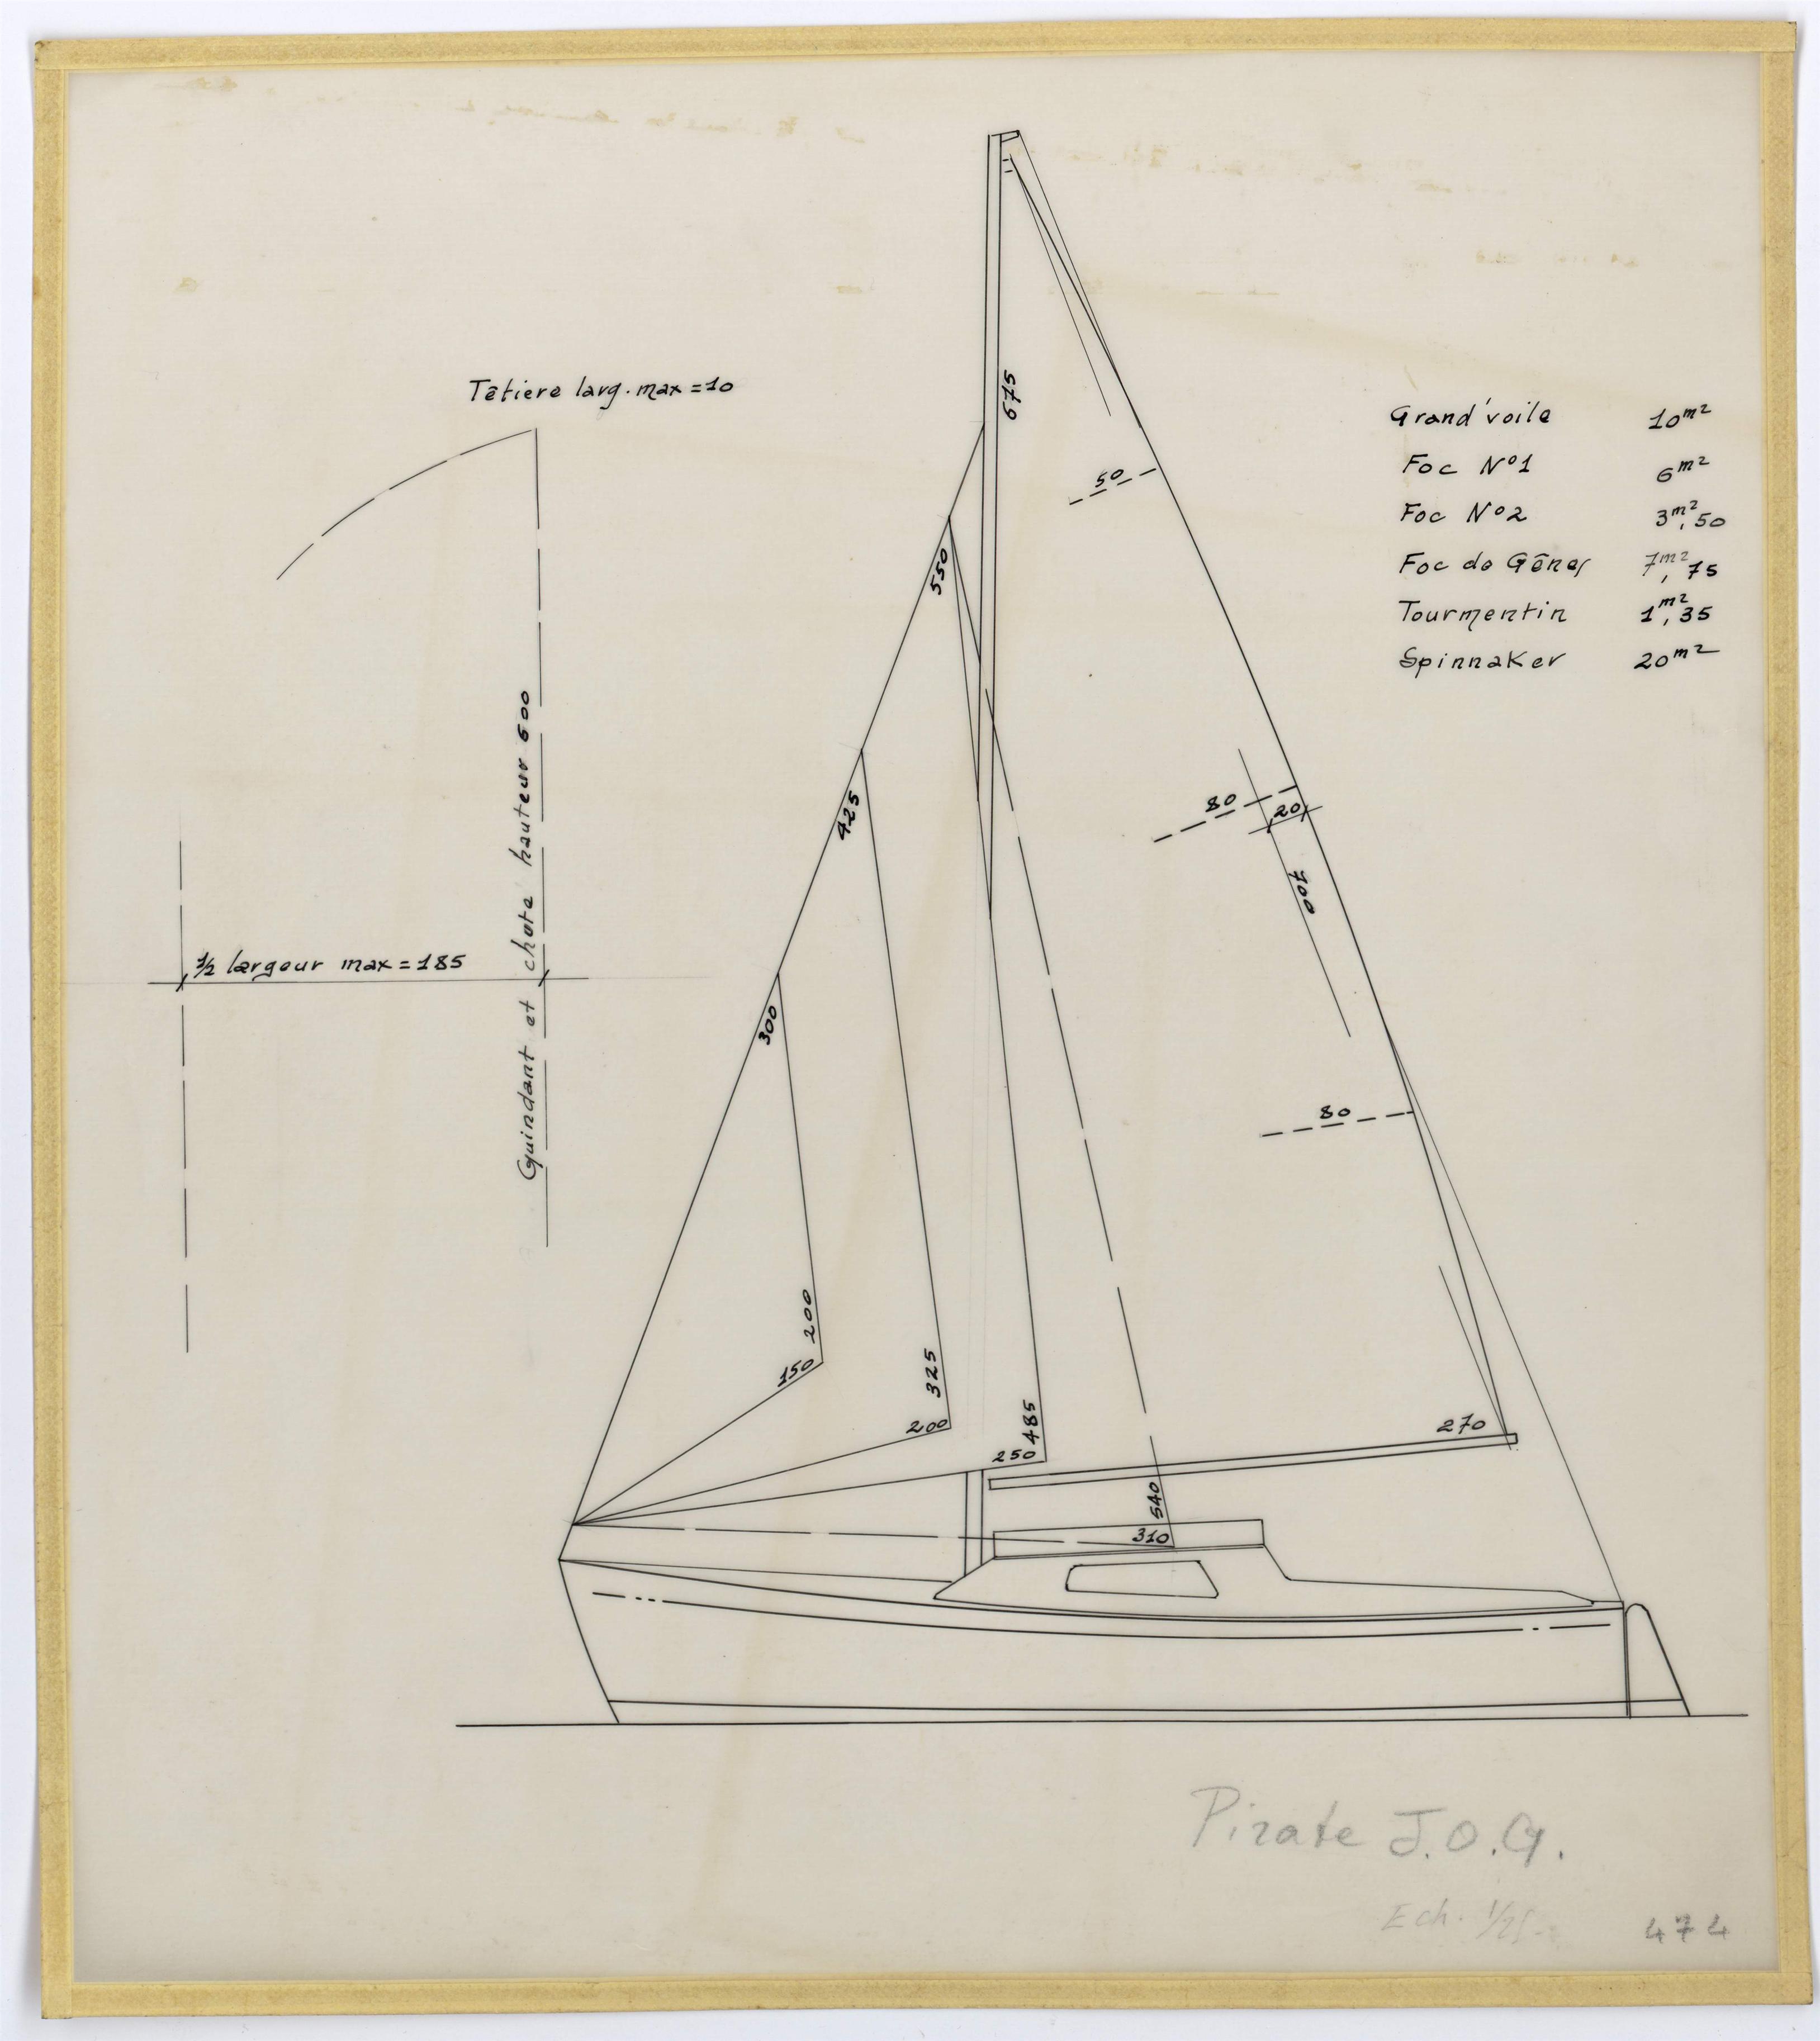 Têtiere larg. max = 10
Grand'voile 10 m²
Foc N°1 6 m²
Foc N°2 3 m², 50
Foc de Gênes 7 m², 75
Tourmentin 1 m², 35
Spinnaker 20 m²
675
50
550
80
20
700
425
Guindant et chute hauteur 600
½ largeur max = 185
300
80
200
150
325
200
485
250
270
540
310
Pirate J.O.G.
Ech. 1/25
474